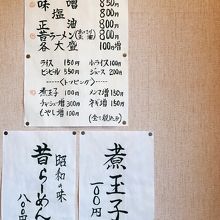 味噌 850円
塩 800円
正油 800円
昔ラーメン 800円
各大盛 100円増
ライス 150円 小ライス 100円
ビンビール 550円 ジュース 200円
トッピング
煮玉子 100円 メンマ増 150円
チャーシュー増 300円 ネギ増 150円
もやし増 100円 (全て税込み)
煮玉子
一〇〇円
昭和の味
昔らーめん
八〇〇円